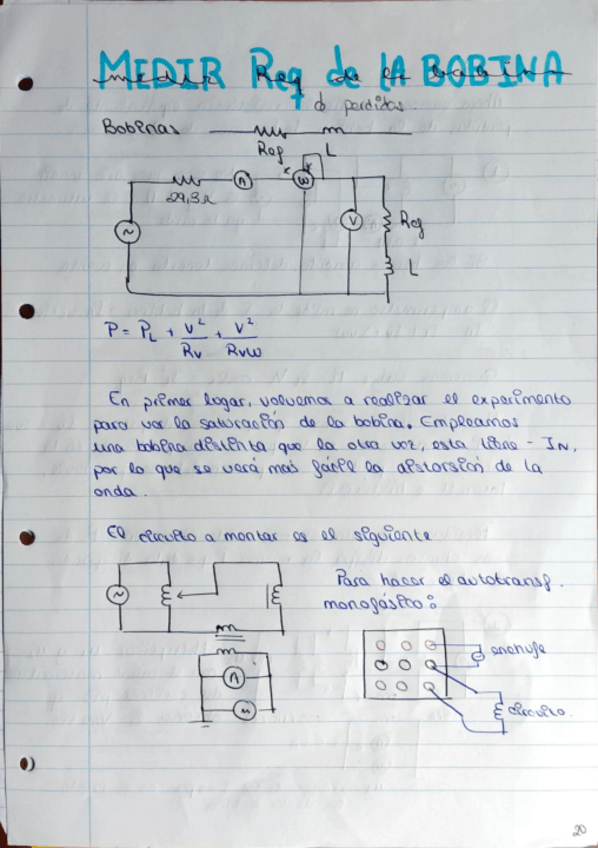 MEDIR Req de LA BOBINA
ϕ perdidas.
Bobinas
Req L
29,3Ω A W V Req
L
P = PL + V²/Rv + V²/Rvw
En primer lugar, volvemos a realizar el experimento
para ver la saturación de la bobina. Empleamos
una bobina distinta que la otra vez, esta tiene - IN,
por lo que se verá más fácil la distorsión de la
onda.
El circuito a montar es el siguiente
Para hacer el autotransf.
monofásico:
enchufe
A
circuito.
20